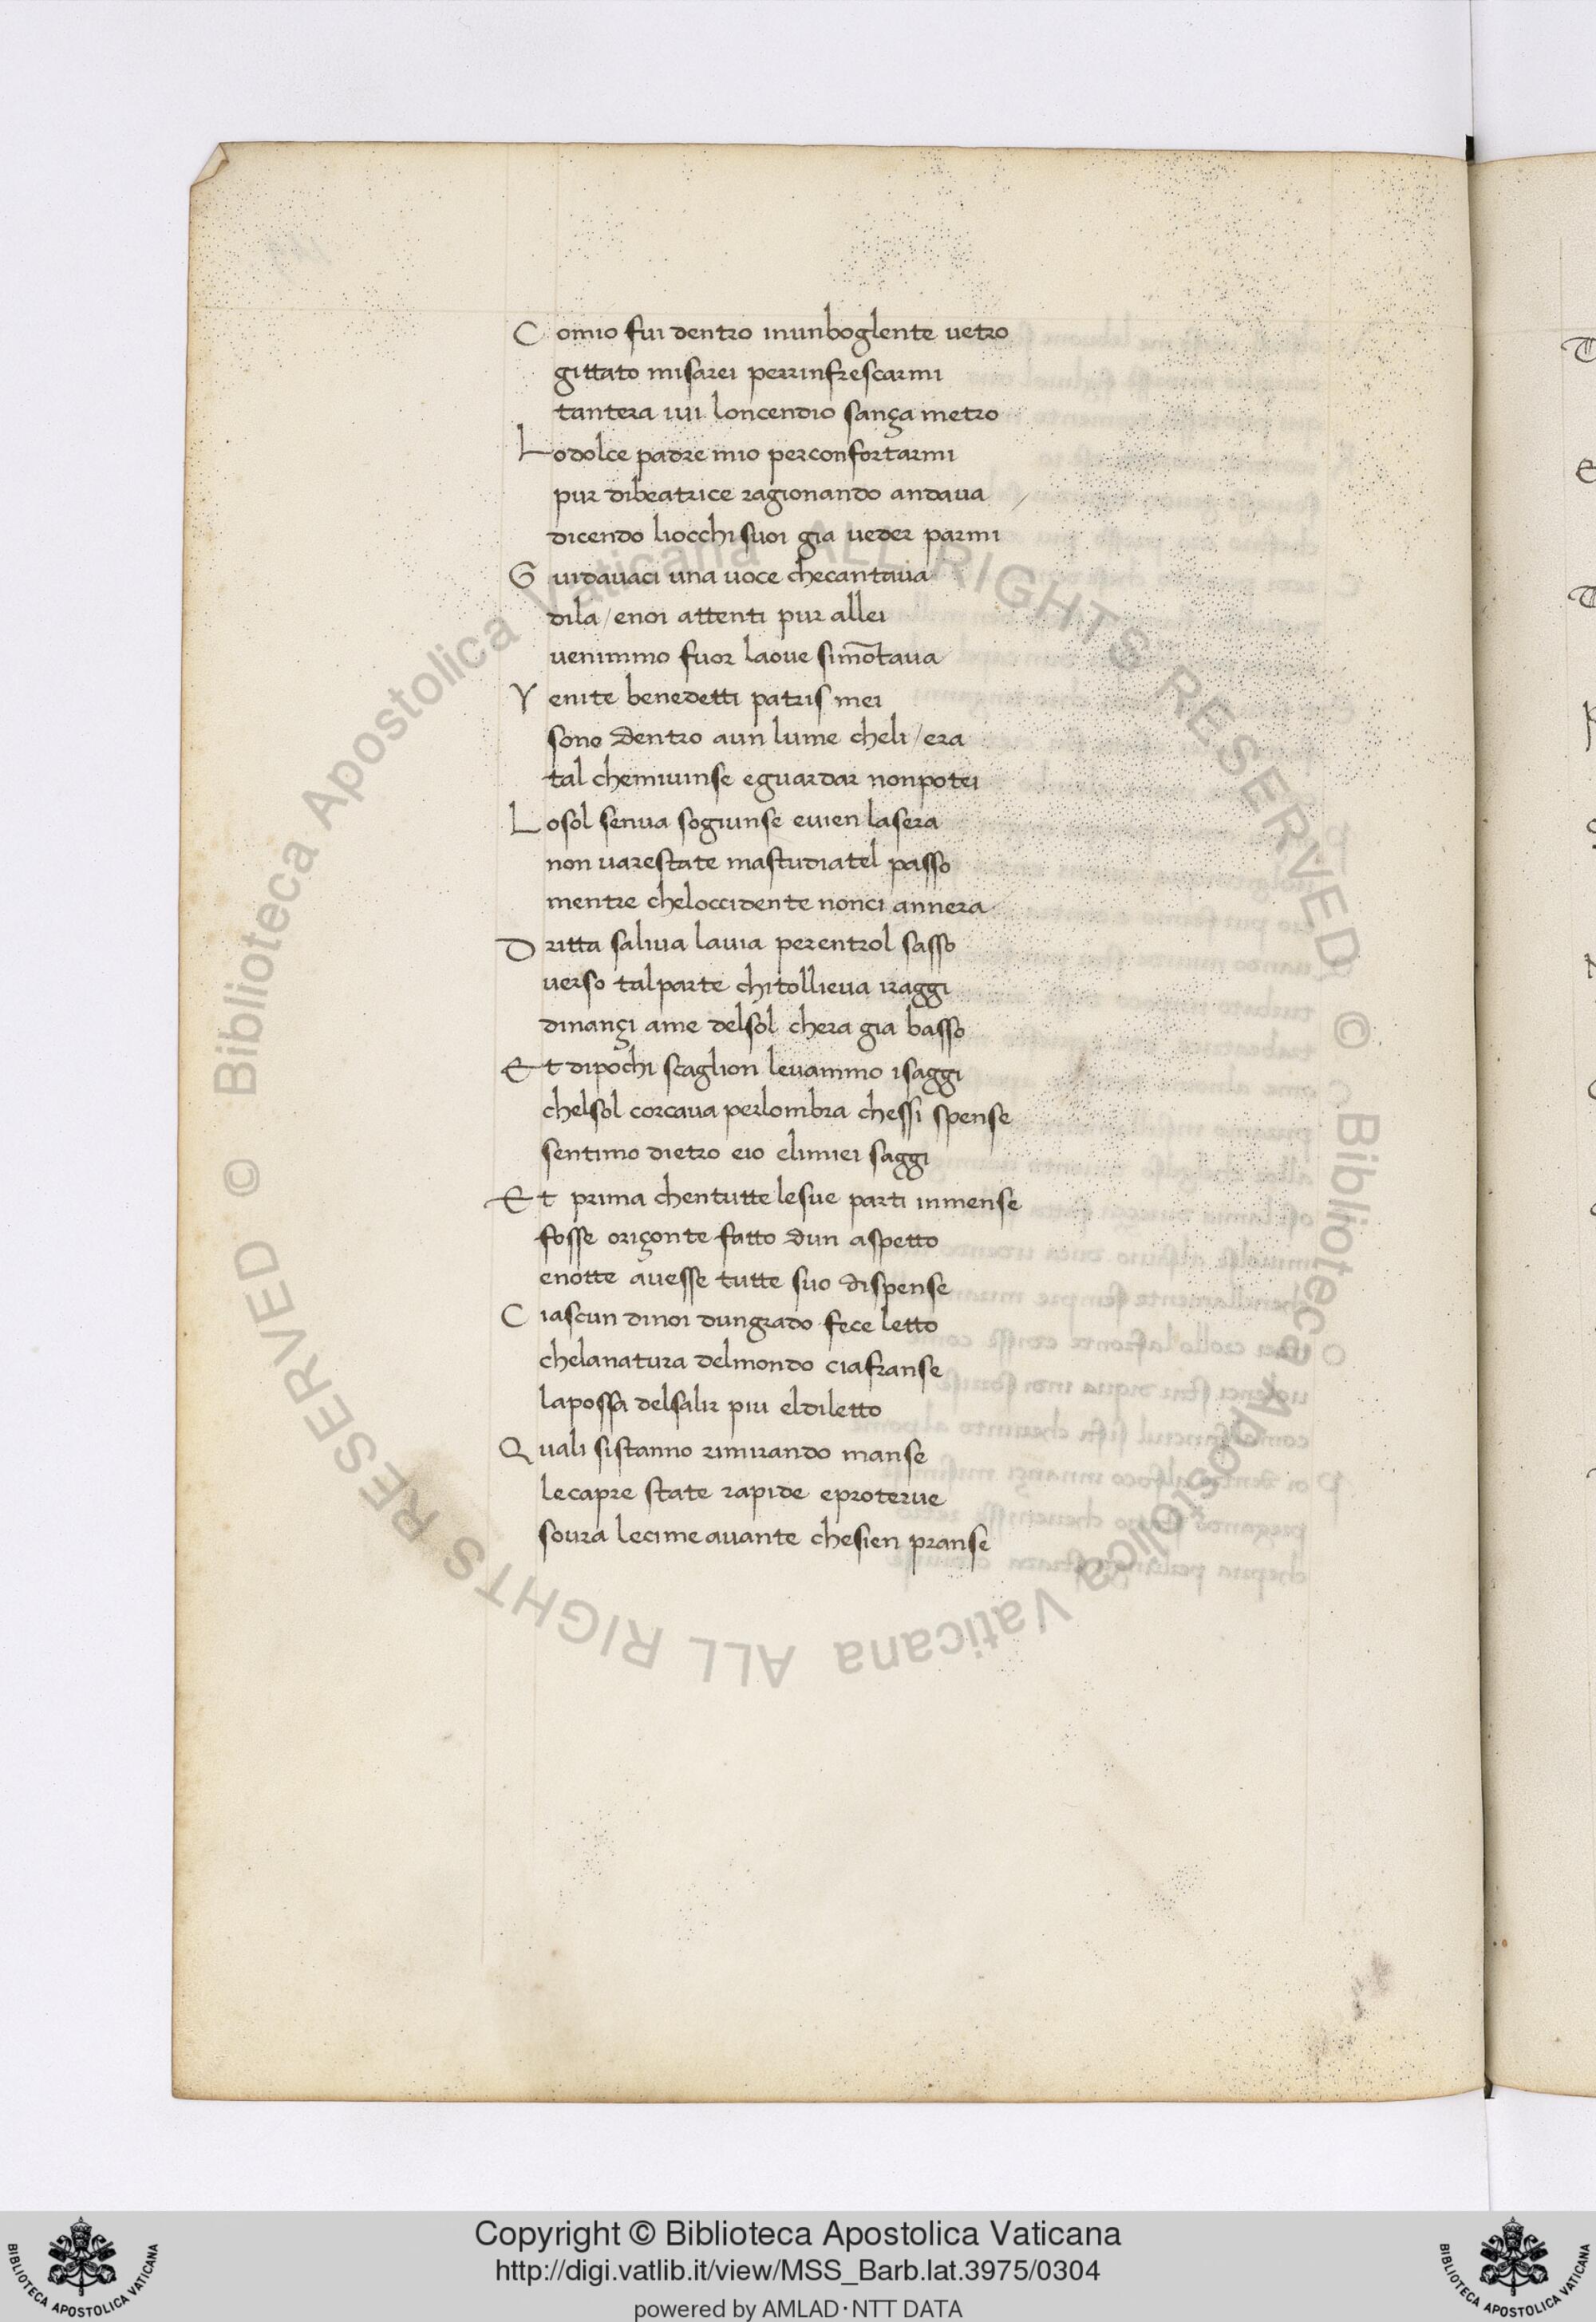 C omio fui dentro inunboglente uetro
gittato misarei perrinfrescarmi
tantera iui loncendio sança metro
L odolce padre mio perconfortarmi
pur dibeatrice ragionando andaua
dicendo liocchi suoi gia ueder parmi
G uidauaci una uoce checantaua
dila/enoi attenti pur allei
uenimmo fuor laoue simōtaua
V enite benedetti patris mei
sono dentro aun lume cheli/era
tal chemiuinse eguardar nonpotei
L osol senua sogiunse euien lasera
non uarestate mastudiatel passo
mentre cheloccidente nonci annera
D ritta saliua lauia perentrol sasso
uerso talparte chitollieua iraggi
dinançi ame delsol chera gia basso
E t dipochi scaglion leuammo isaggi
chelsol corcaua perlombra chessi spense
sentimo dietro eio elimiei saggi
E t prima chentutte lesue parti inmense
fosse oriçonte fatto dun aspetto
enotte auesse tutte suo dispense
C iascun dinoi dungrado fece letto
chelanatura delmondo ciafranse
lapossa delsalir piu eldiletto
Q uali sistanno rimirando manse
lecapre state rapide eproterue
soura lecime auante chesien pranse
© Biblioteca Apostolica Vaticana ALL RIGHTS RESERVED © Biblioteca Apostolica Vaticana ALL RIGHTS RESERVED
Copyright © Biblioteca Apostolica Vaticana
http://digi.vatlib.it/view/MSS_Barb.lat.3975/0304
powered by AMLAD·NTT DATA
BIBLIOTECA APOSTOLICA VATICANA
BIBLIOTECA APOSTOLICA VATICANA